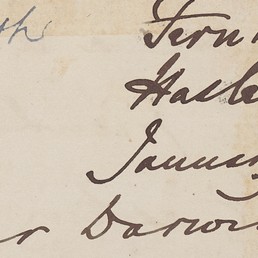 th
Fern
Hasle
January
r Darwi